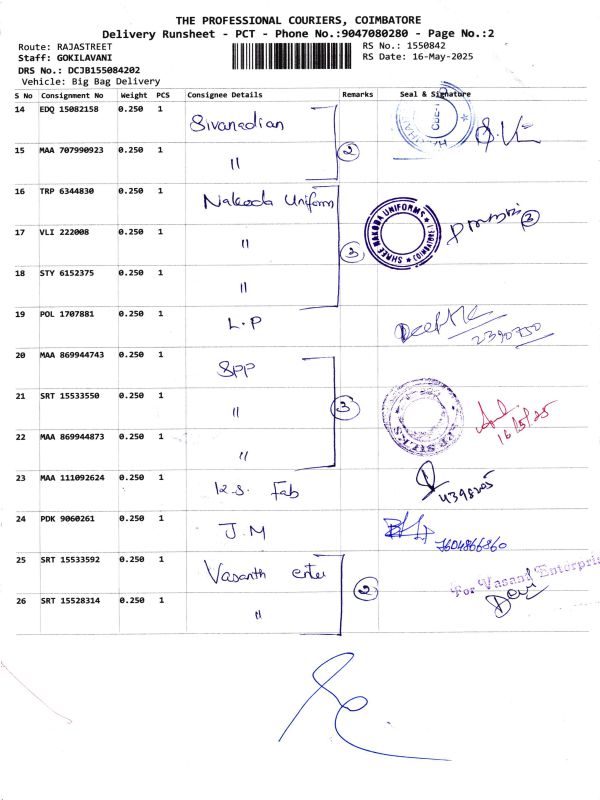 THE PROFESSIONAL COURIERS, COIMBATORE
Delivery Runsheet - PCT - Phone No.:9047080280 - Page No.:2
Route: RAJASTREET RS No.: 1550842
Staff: GOKILAVANI RS Date: 16-May-2025
DRS No.: DCJB155084202
Vehicle: Big Bag Delivery
S No Consignment No Weight PCS Consignee Details Remarks Seal & Signature
14 EDQ 15082158 0.250 1 Sivanadian
15 MAA 707990923 0.250 1 " 2
16 TRP 6344830 0.250 1 Nakoda Uniform
SHREE NAKODA UNIFORMS
17 VLI 222008 0.250 1 " 3 3
18 STY 6152375 0.250 1 "
19 POL 1707881 0.250 1 L.P Deepak
2390750
20 MAA 869944743 0.250 1 SPP
21 SRT 15533550 0.250 1 " 3
16/5/25
22 MAA 869944873 0.250 1 "
23 MAA 111092624 0.250 1 K.S. Fab 4398205
24 PDK 9060261 0.250 1 J.M 7604866860
25 SRT 15533592 0.250 1 Vasanth enter
For Vasant Enterpris
26 SRT 15528314 0.250 1 " 2 Devi